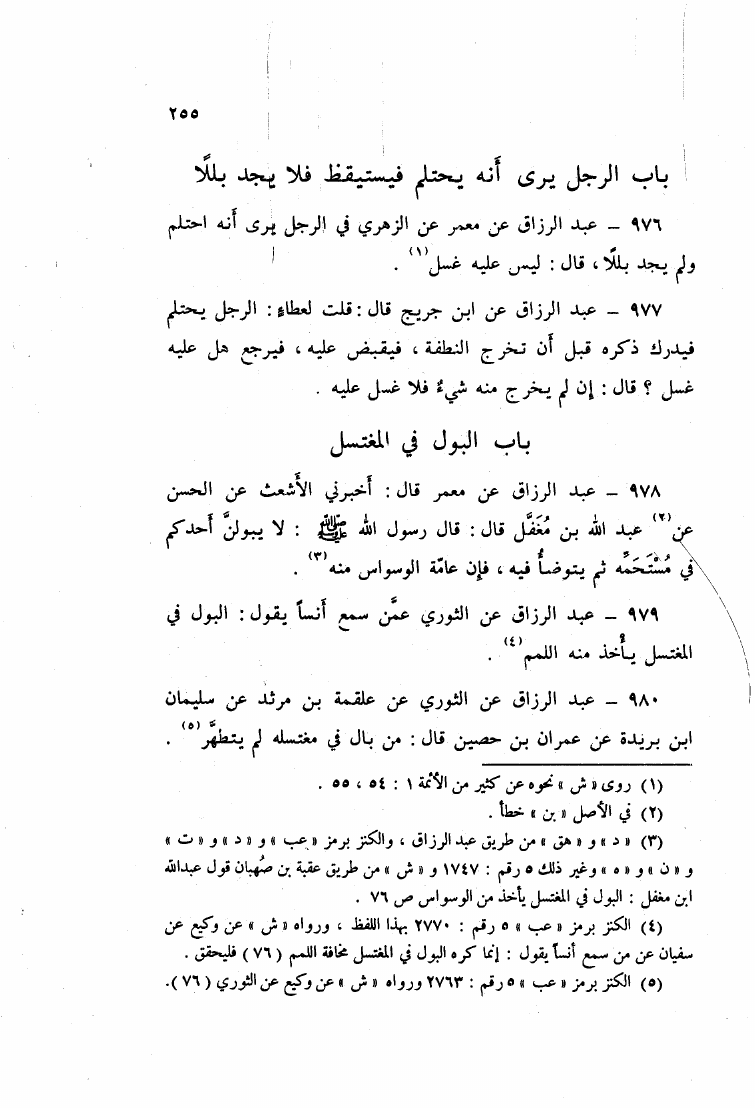 ٢٥٥
باب الرجل يرى أنه يحتلم فيستيقظ فلا يجد بللًا
٩٧٦ – عبد الرزاق عن معمر عن الزهري في الرجل يرى أنه احتلم
ولم يجد بللًا، قال : ليس عليه غسل(١) .
٩٧٧ – عبد الرزاق عن ابن جريج قال : قلت لعطاءٍ : الرجل يحتلم
فيدرك ذكره قبل أن تخرج النطفة ، فيقبض عليه ، فيرجع هل عليه
غسل ؟ قال : إن لم يخرج منه شيءٌ فلا غسل عليه .
باب البول في المغتسل
٩٧٨ – عبد الرزاق عن معمر قال : أخبرني الأشعث عن الحسن
عن(٢) عبد الله بن مُغَفَّل قال : قال رسول الله ﷺ : لا يبولنَّ أحدكم
في مُسْتَحَمِّه ثم يتوضأُ فيه ، فإن عامّة الوسواس منه(٣) .
٩٧٩ – عبد الرزاق عن الثوري عمَّن سمع أنساً يقول : البول في
المغتسل يأْخذ منه اللمم(٤) .
٩٨٠ – عبد الرزاق عن الثوري عن علقمة بن مرثد عن سليمان
ابن بريدة عن عمران بن حصين قال : من بال في مغتسله لم يتطهَّر(٥) .
(١) روى «ش» نحوه عن كثير من الأئمة ١ : ٥٤ ، ٥٥ .
(٢) في الأصل «بن» خطأ .
(٣) «د» و«هق» من طريق عبد الرزاق ، والكنز برمز «عب» و«د» و«ت»
و«ن» و«ه» وغير ذلك ٥ رقم : ١٧٤٧ و«ش» من طريق عقبة بن صُهبان قول عبدالله
ابن مغفل : البول في المغتسل يأخذ من الوسواس ص ٧٦ .
(٤) الكنز برمز «عب» ٥ رقم : ٢٧٧٠ بهذا اللفظ ، ورواه «ش» عن وكيع عن
سفيان عن من سمع أنساً يقول : إنما كره البول في المغتسل مخافة اللمم (٧٦) فليحقق .
(٥) الكنز برمز «عب» ٥ رقم : ٢٧٦٣ ورواه «ش» عن وكيع عن الثوري (٧٦).